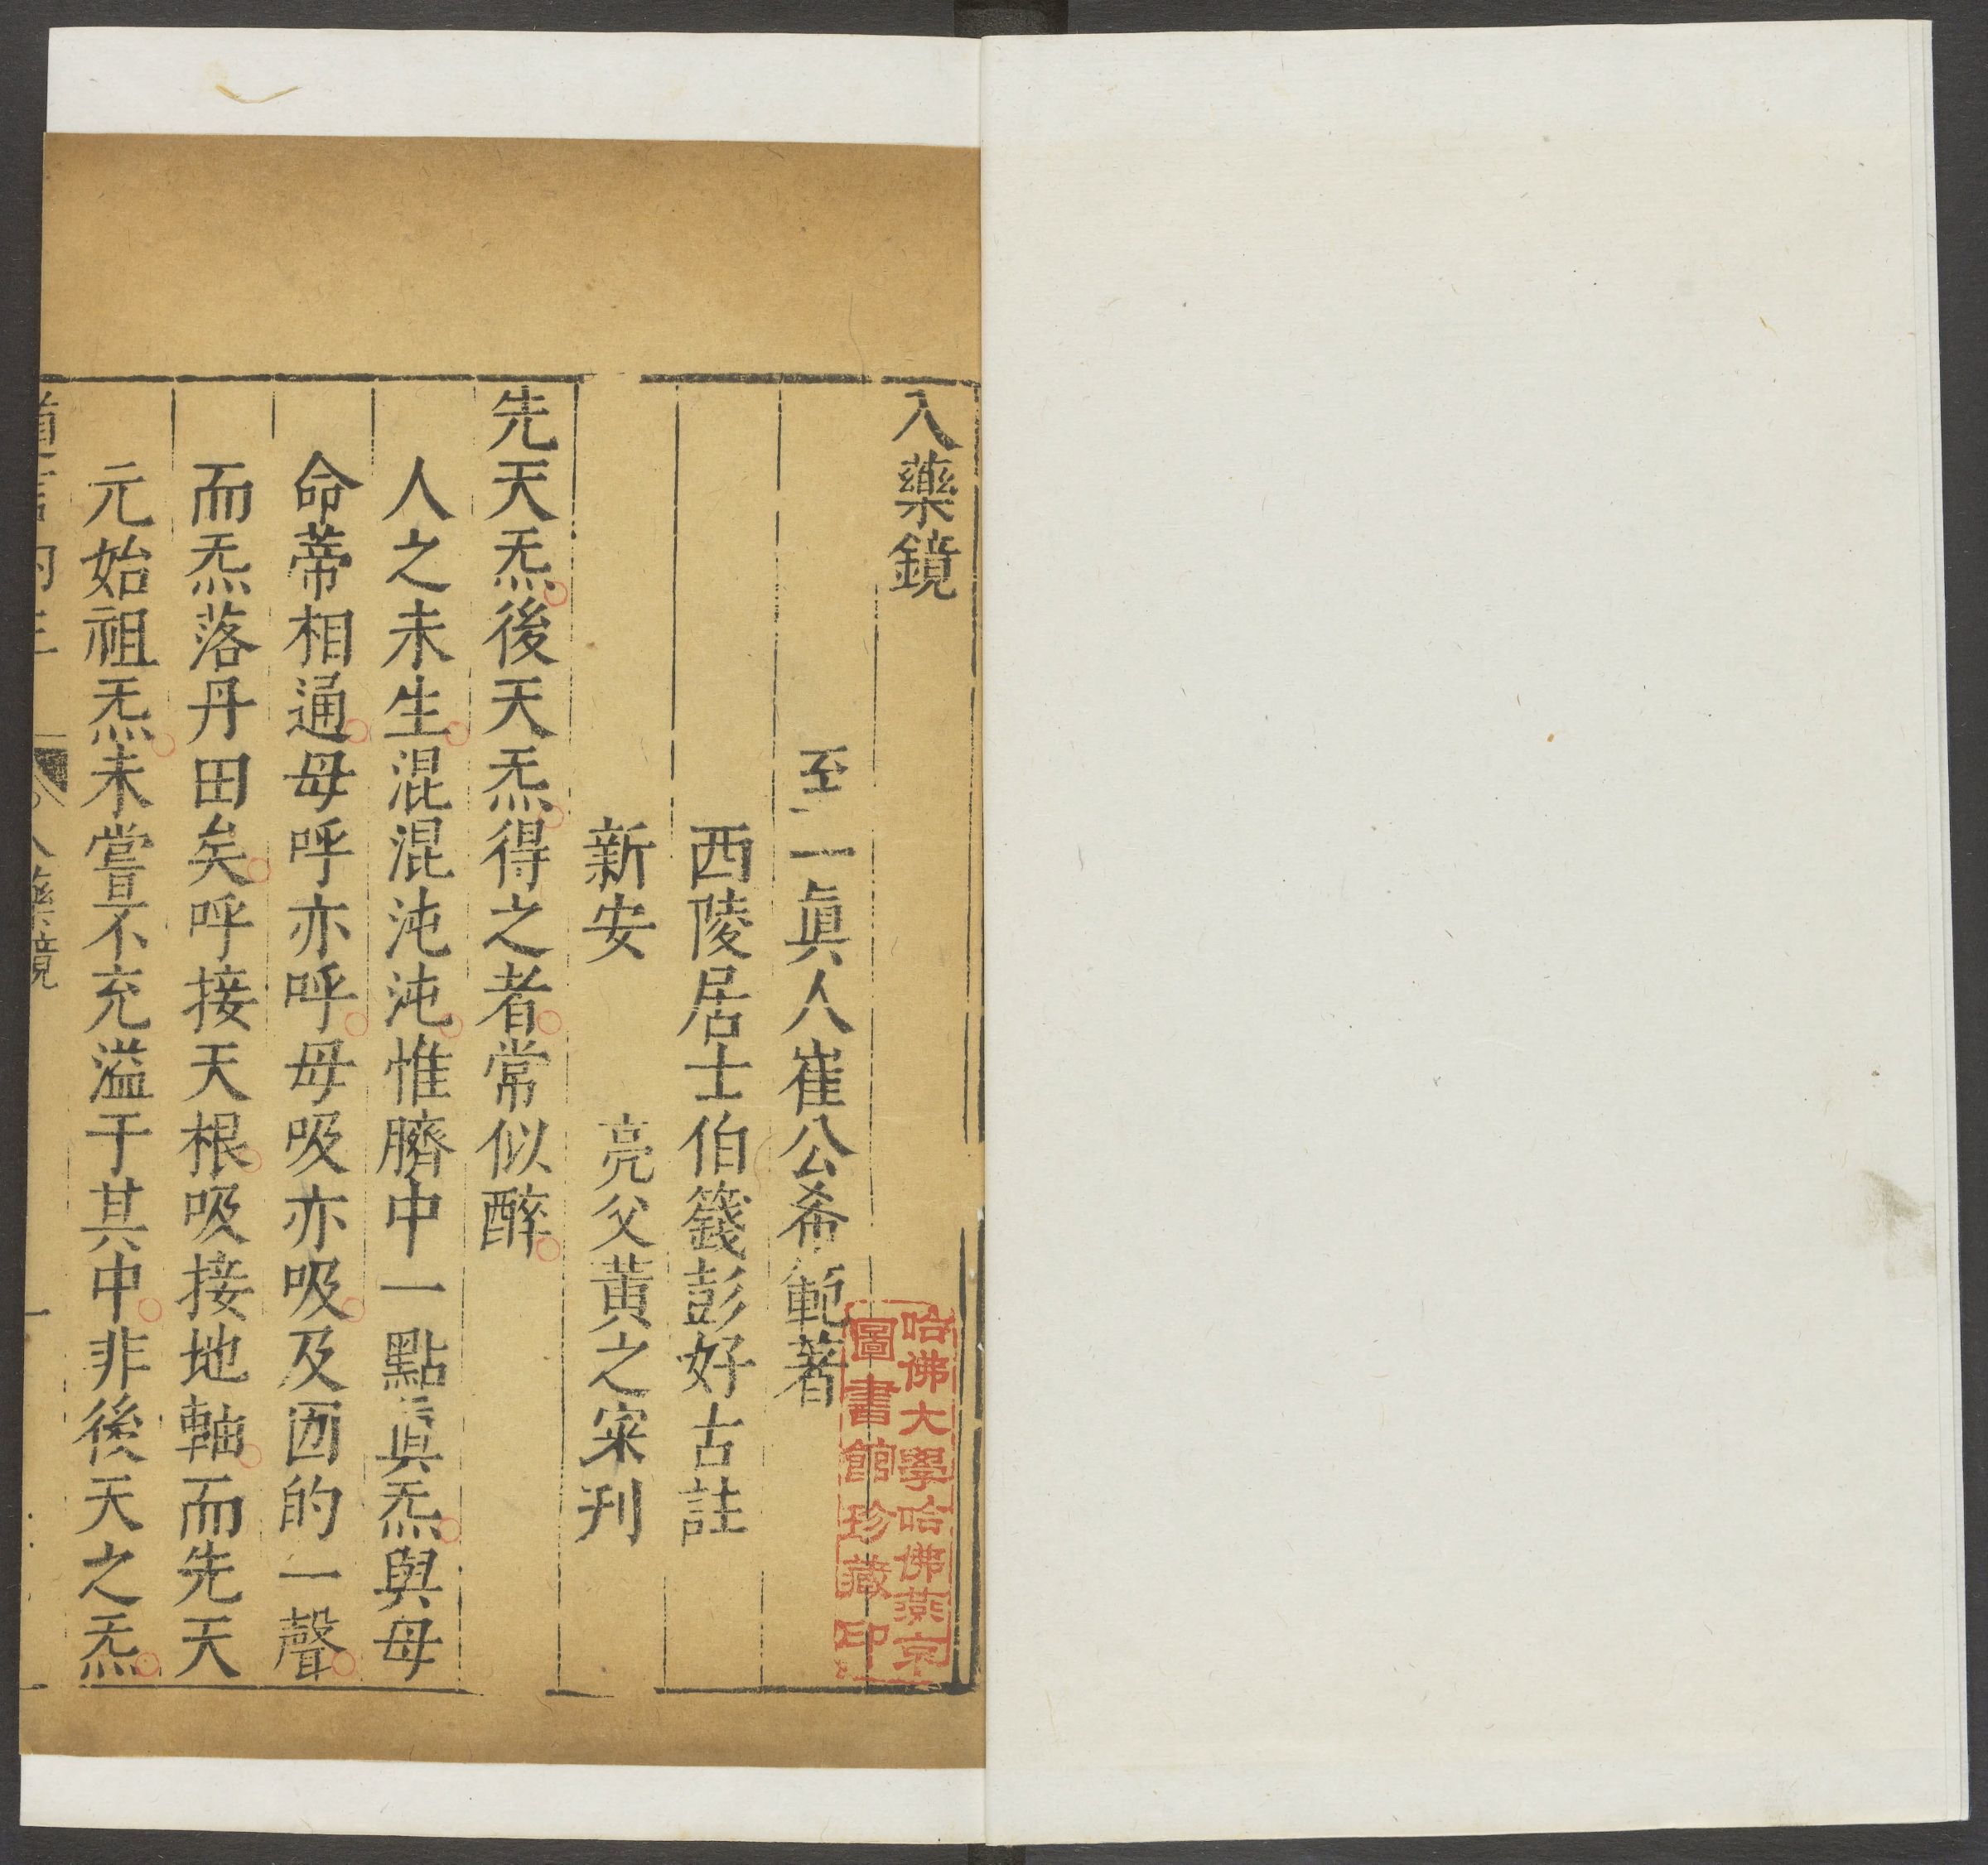 入藥鏡
至一眞人崔公希範著
西陵居士伯籛彭好古註
新安 亮父黃之寀刊
先天炁後天炁得之者常似醉
人之未生混混沌沌惟臍中一點眞炁與母
命蒂相通母呼亦呼母吸亦吸及囡的一聲
而炁落丹田矣呼接天根吸接地軸而先天
元始祖炁未嘗不充溢于其中非後天之炁
道言內三 入藥鏡 一
哈佛大學哈佛燕京
圖書館珍藏印